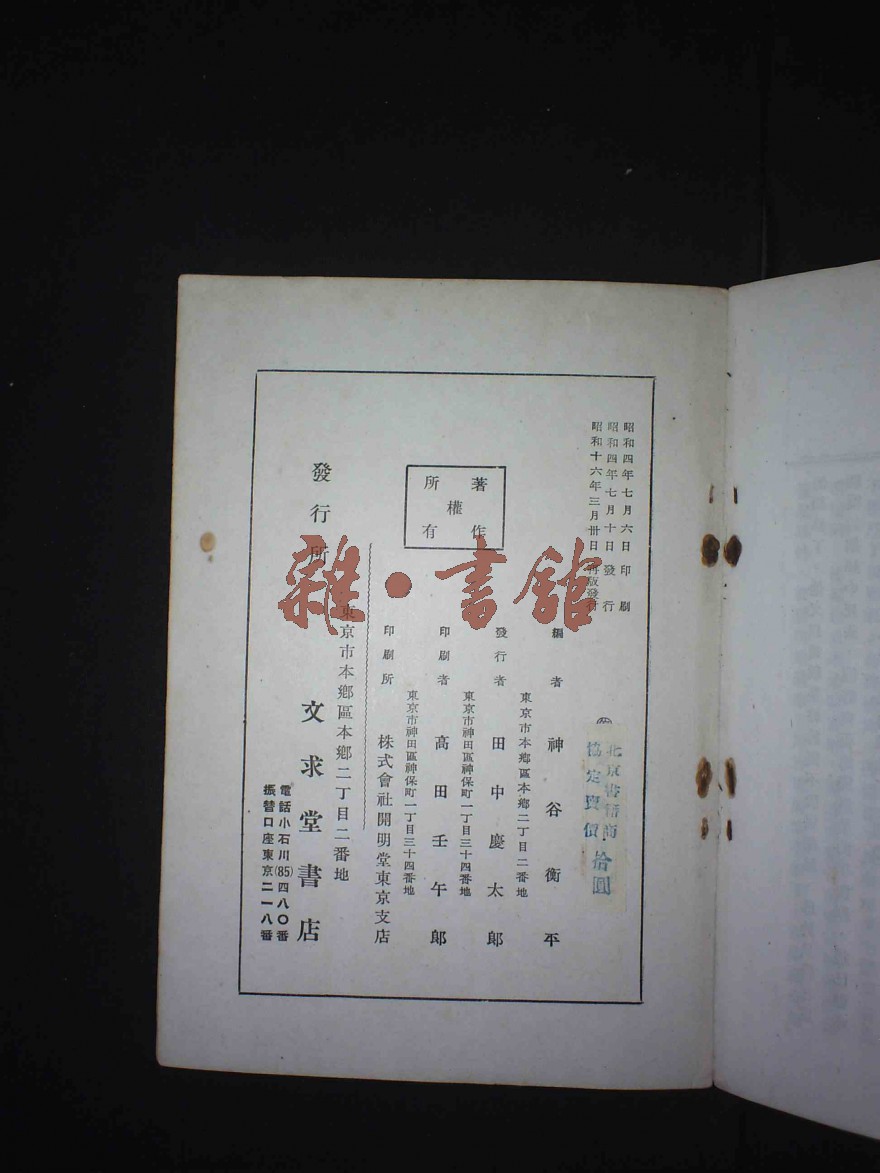 昭和四年七月六日印刷
昭和四年七月十日發行
昭和十六年三月卅日再版發行
北京書籍商
協定賣價 拾圓
著作
權
所有
編者 神谷衡平
東京市本鄉區本鄉二丁目二番地
發行者 田中慶太郞
東京市神田區神保町一丁目三十四番地
印刷者 高田壬午郞
東京市神田區神保町一丁目三十四番地
印刷所 株式會社開明堂東京支店
東京市本鄉區本鄉二丁目二番地
發行所 文求堂書店
電話小石川(85)四八〇番
振替口座東京二一八番
雜·書館